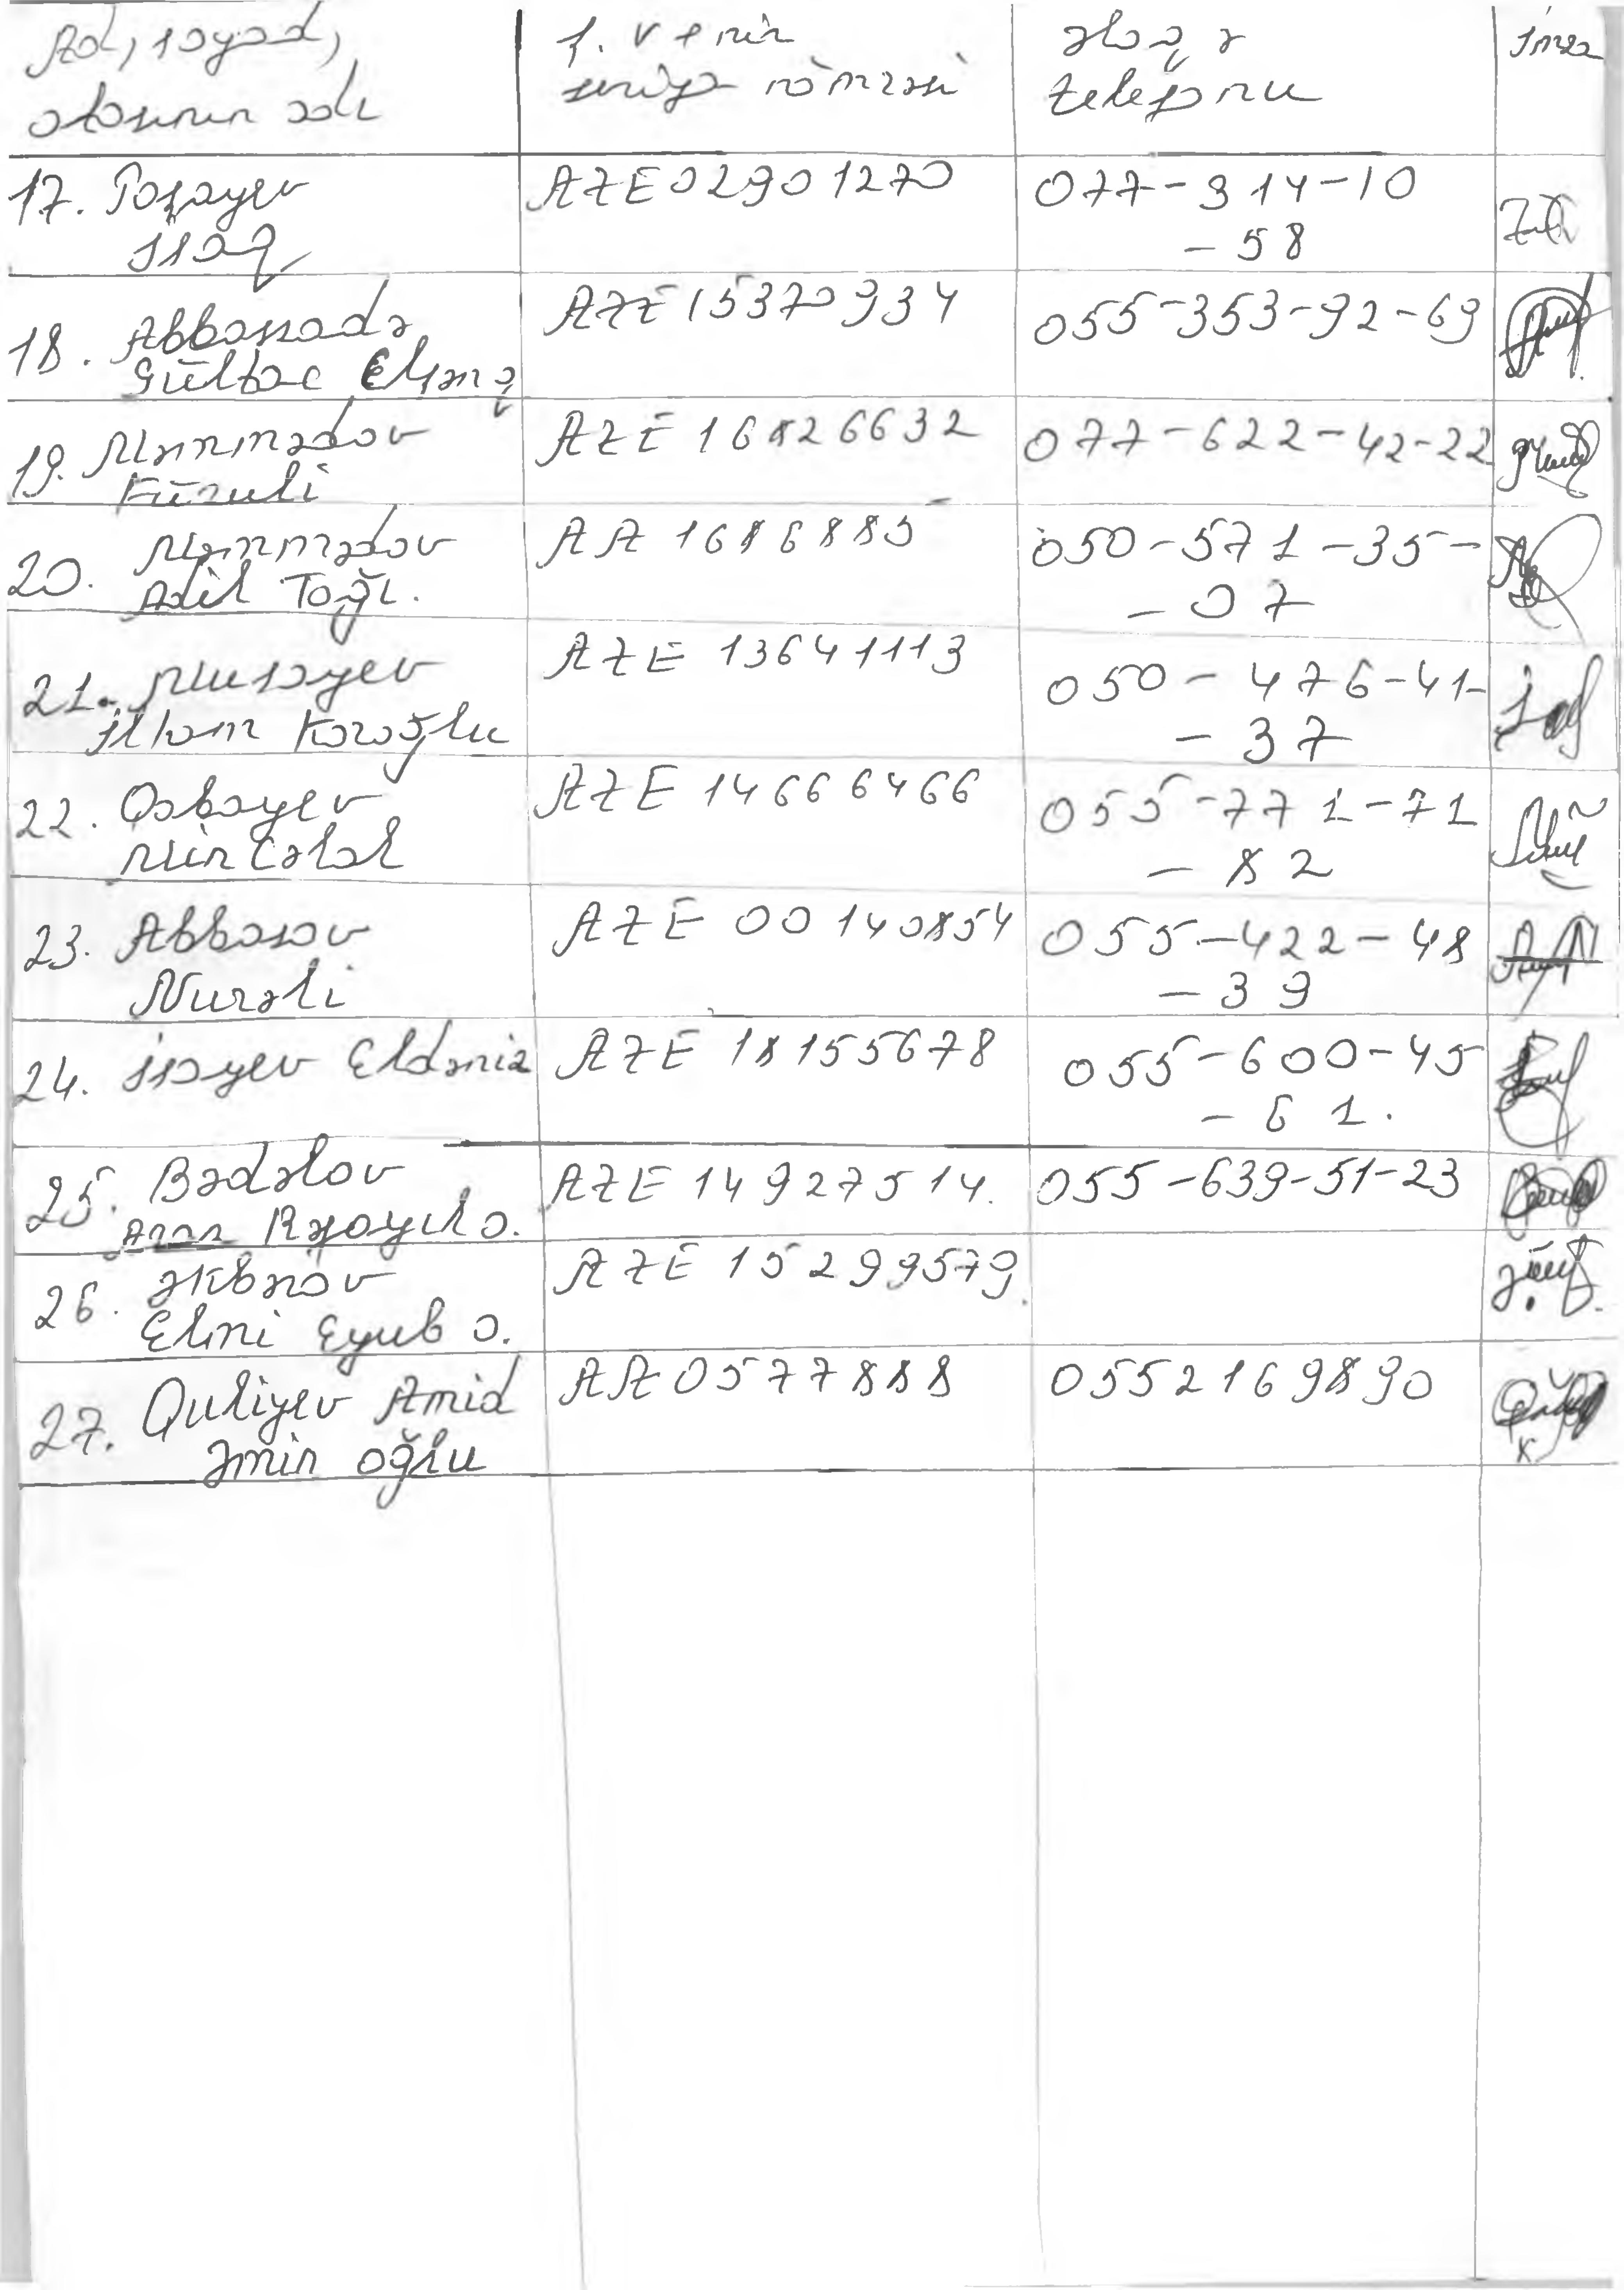 Ad, soyad,
atasının adı
ş. v-e nin
seriya nömrəsi
əlaqə
telefonu
imza
17. Paşayev
İsaq
AZE 02901270
077-314-10
-58
18. Abbaszadə
Gültac Elşən q
AZE 15370934
055-353-92-69
19. Məmmədov
Füzuli
AZE 16826632
077-622-42-22
20. Məmmədov
Adil Tağı.
AA 1686885
050-571-35-
-07
21. Musayev
İlham Koroğlu
AZE 13641113
050-476-41-
-37
22. Qabayev
Mircəlal
AZE 14666466
055-771-71
-82
23. Abbasov
Nurəli
AZE 00140854
055-422-48
-39
24. İsayev Eldəniz
AZE 18155678
055-600-45
-61.
25. Bədəlov
Araz Rzayıl o.
AZE 14927514.
055-639-51-23
26. Əkbərov
Elmi Eyub o.
AZE 15299579
27. Quliyev Amid
Əmir oğlu
AA 0577888
0552169890